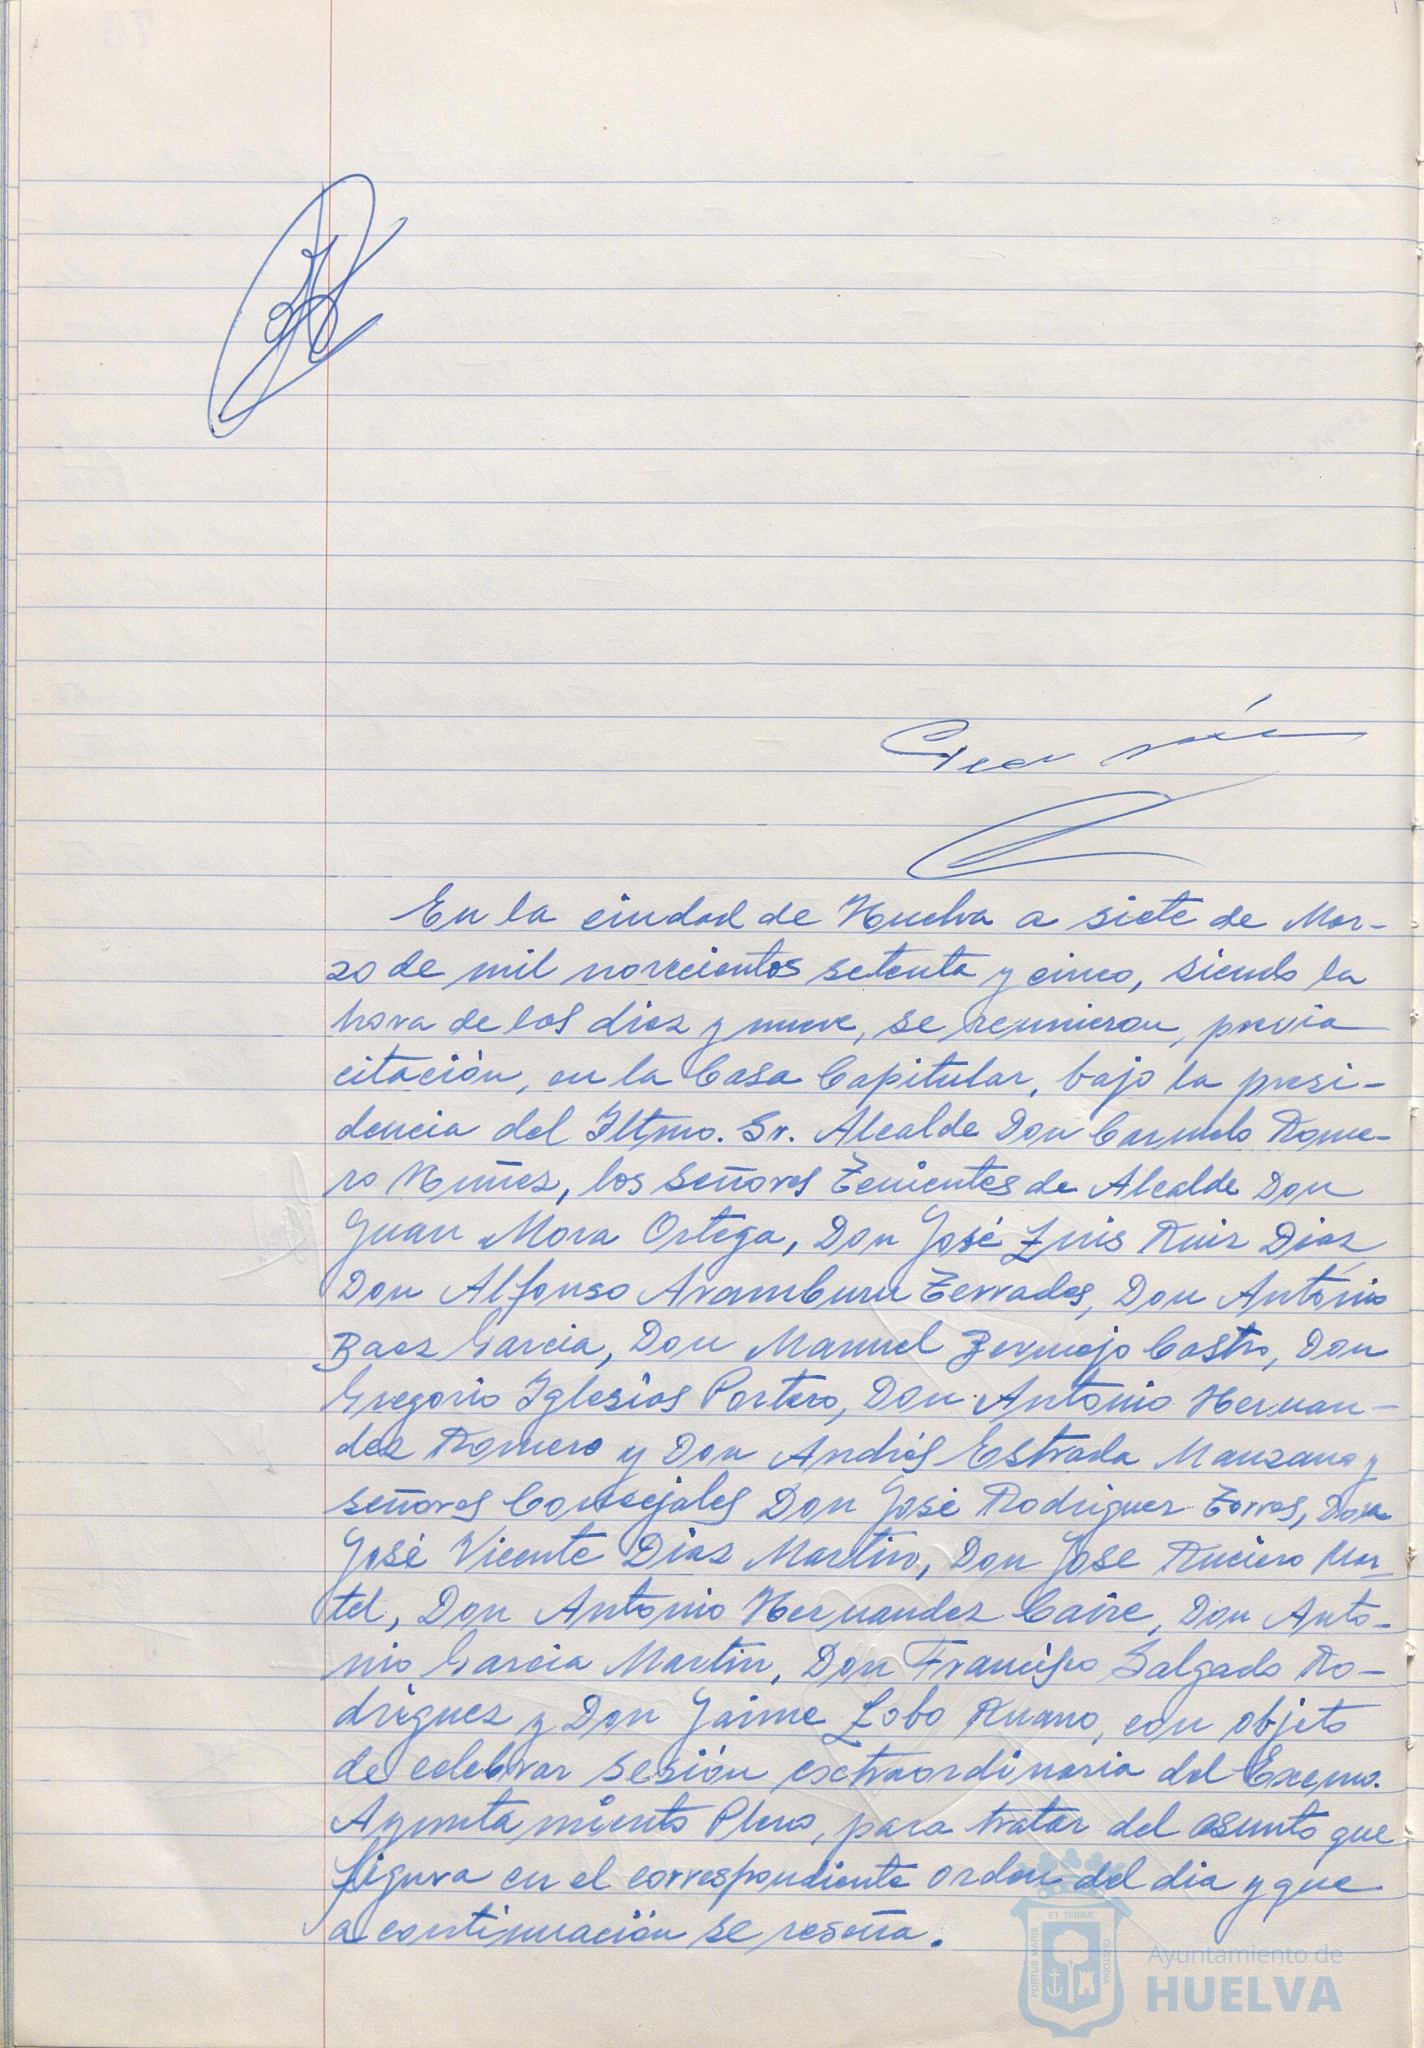 En la ciudad de Huelva a siete de Mar-
zo de mil novecientos setenta y cinco, siendo la
hora de las diez y nueve, se reunieron, previa
citación, en la Casa Capitular, bajo la presi-
dencia del Iltmo. Sr. Alcalde Don Carmelo Rome-
ro Nuñez, los señores Tenientes de Alcalde Don
Juan Mora Ortega, Don José Luis Ruiz Diaz,
Don Alfonso Aramburu Terrades, Don Antonio
Baez Garcia, Don Manuel Bermejo Castro, Don
Gregorio Iglesias Portero, Don Antonio Hernan-
dez Romero y Don Andrés Estrada Manzano y
señores Concejales Don José Rodriguez Torres, Don
José Vicente Diaz Martin, Don Jose Ruciero Mar-
tel, Don Antonio Hernandez Caire, Don Anto-
nio Garcia Martin, Don Francisco Salgado Ro-
driguez y Don Jaime Lobo Ruano, con objeto
de celebrar sesión extraordinaria del Excmo.
Ayuntamiento Pleno, para tratar del asunto que
figura en el correspondiente orden del dia y que
a continuación se reseña.
PORTUS MARIS ET TERRÆ CUSTODIA
Ayuntamiento de
HUELVA